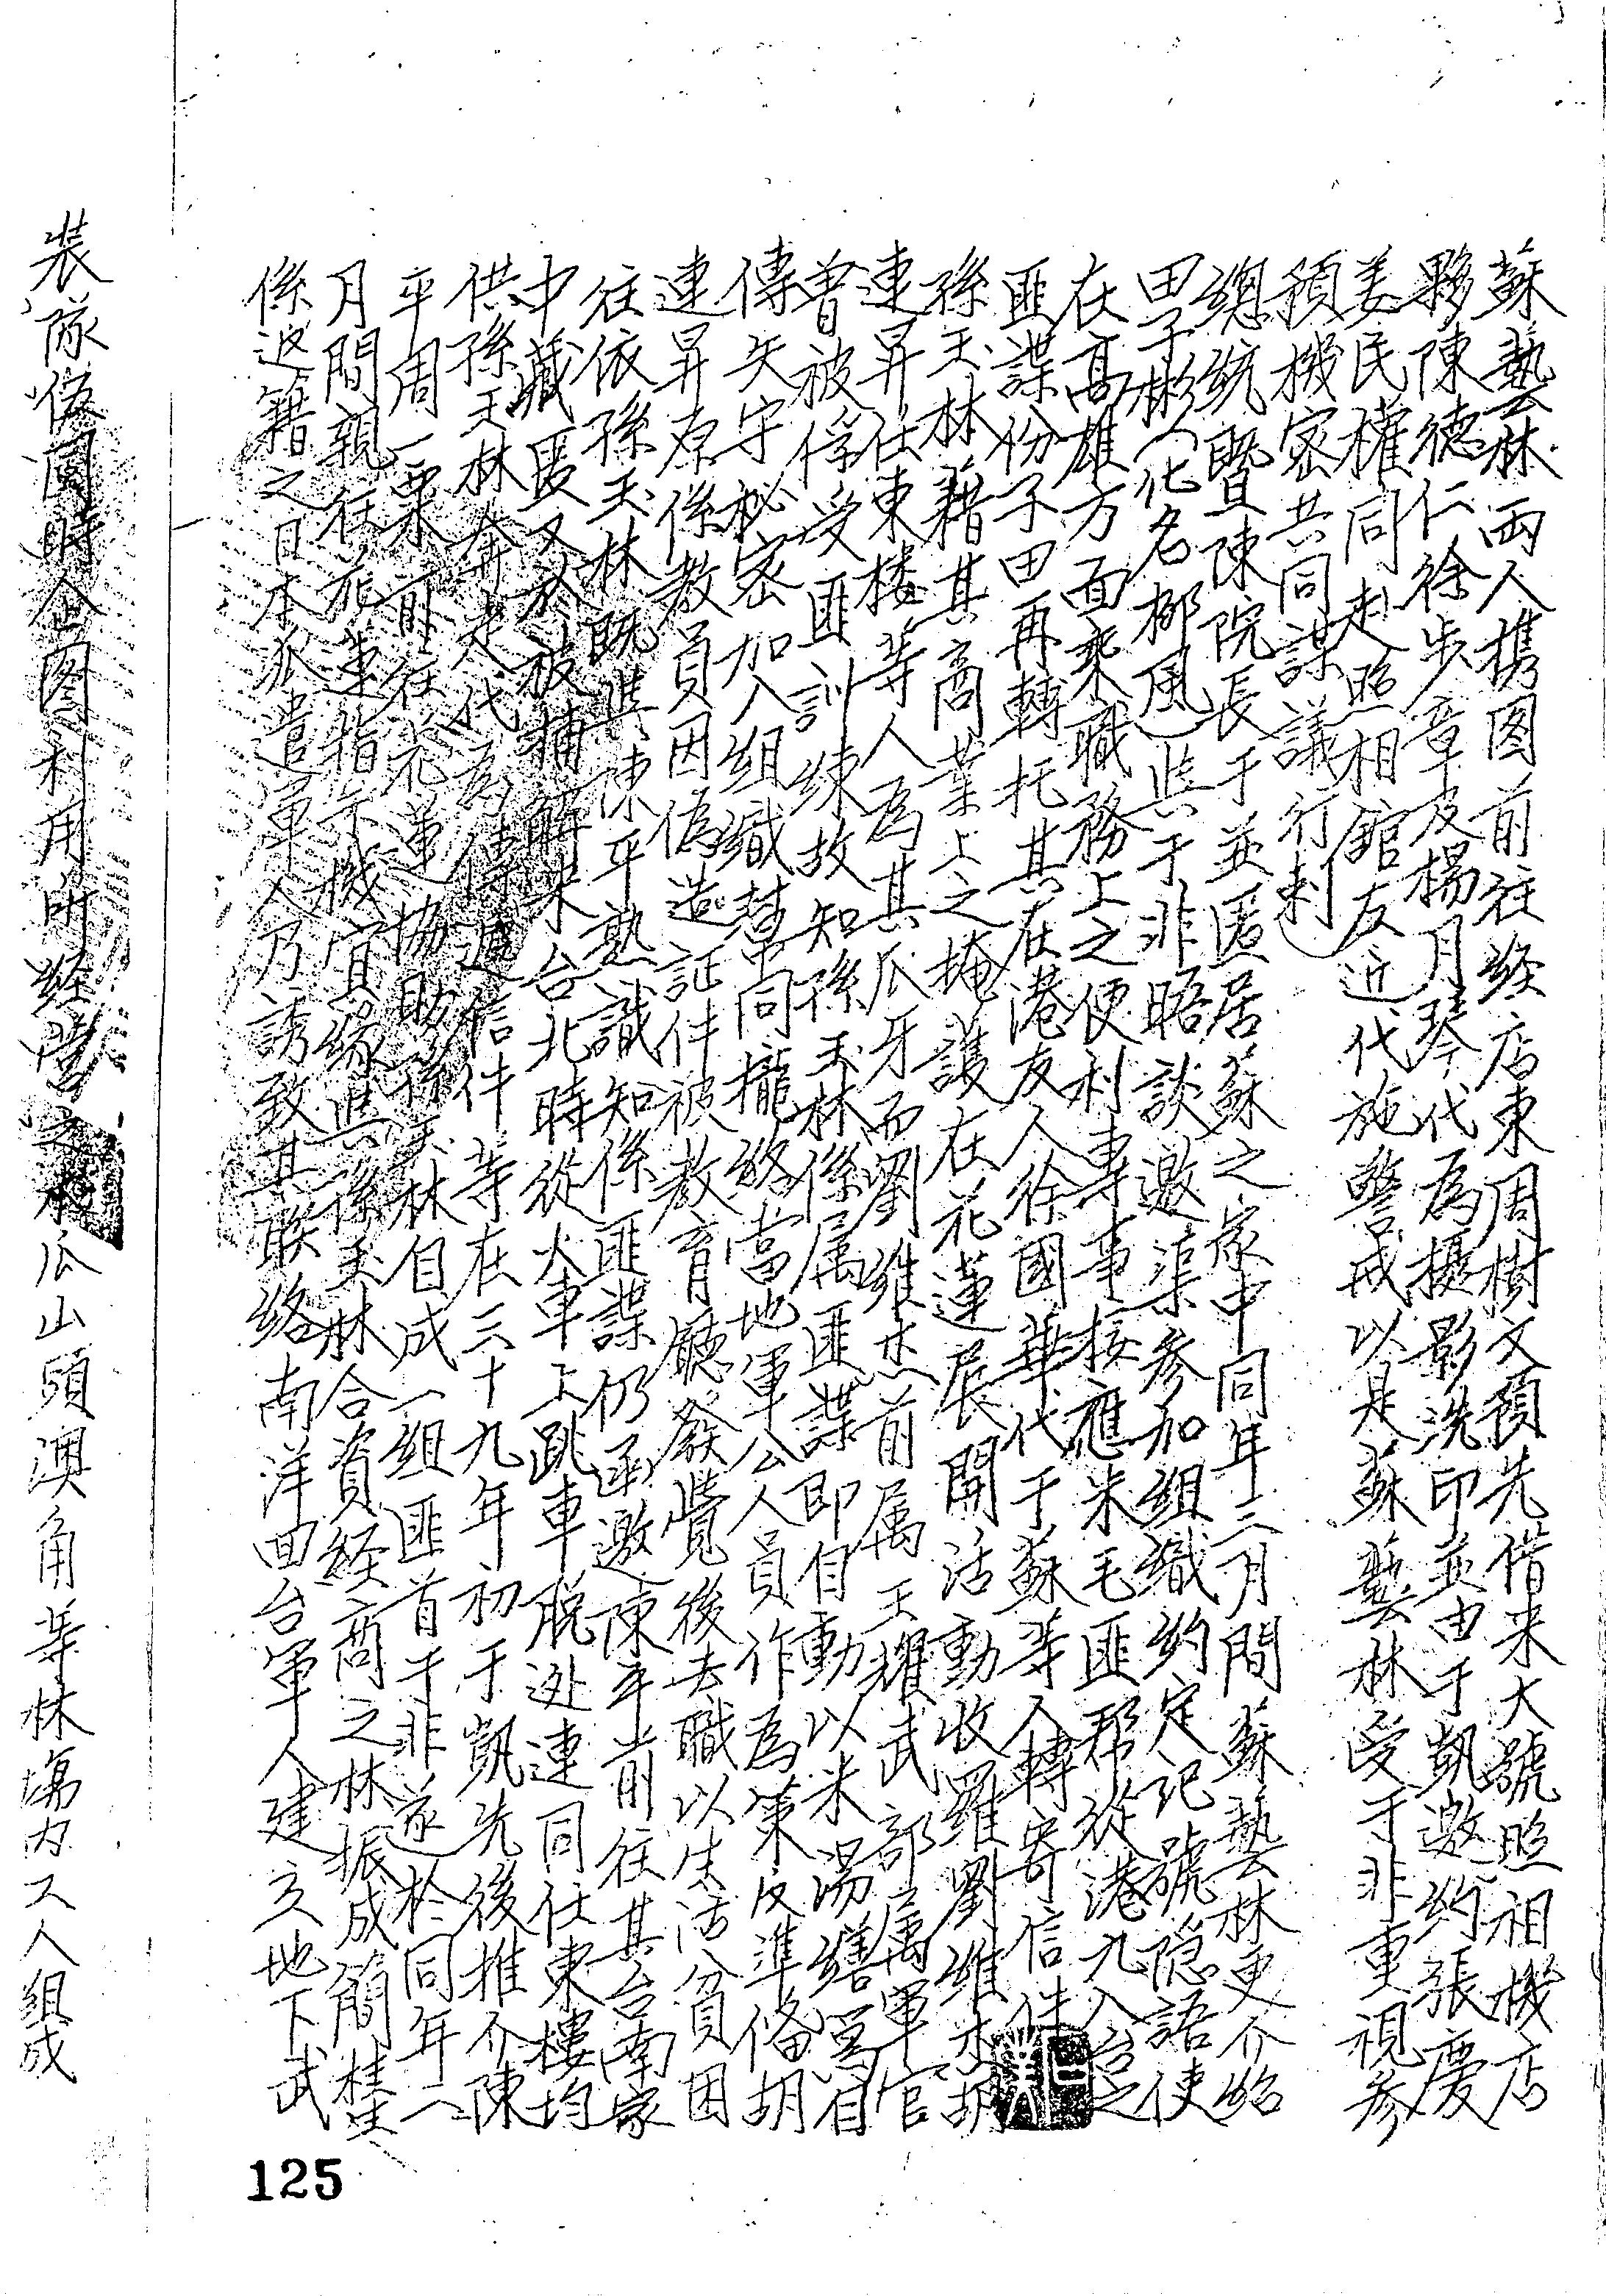 蘇藝林兩人携图前往经店東周樹文預先借来大號照相機店
夥陳德仁徐步章及楊月琴代為摄影洗印並由于凱邀約張慶
姜民權同赴照相館友近代施警戒以是蘇藝林受于非重視参
預機密共同謀議行刺
總統暨陳院長于並匿居蘇之家中同年三月間蘇藝林更介紹
田子彬(化名柳風)與于非晤談邀渠参加組織約定记號隐語使
在高雄方面乘職務上之便利專事接應朱毛匪帮從港九入台之
匪諜份子田再轉托其在港友人徐國華代于蘇等人轉寄信件
孫玉林藉其商業上之掩護在花蓮展開活動收羅劉維杰胡
連昇任東楼等人為其爪牙而劉維杰前属王耀武部属軍官
曾被俘受匪訓練故知孫玉林係属匪諜即自動以米湯繕寫自
傳矢守秘密加入組織幫同攏絡當地軍公人員作為策反準備胡
連昇原係教員因偽造証件被教育廳發覺後去職以生活貧困
往依孫玉林既與陳平熟識知係匪諜仍函邀陳平前往其台南家
中藏匿又於被捕解来台北時從火車上跳車脱逃連同任東樓均
供孫玉林奔走代為傳遞信件等在三十九年初于凱先後推介陳
平周一粟前往花蓮協助孫玉林自成一組匪首于非遂於同年二
月間親往花蓮指示機宜缘與孫玉林合資经商之林振成簡桂
係返籍之日本派遣軍人乃誘致其联络南洋回台軍人建立地下武
裝隊伍圖時企图利用所经营之觀瓜山頭澳角等林場内工人組成
125